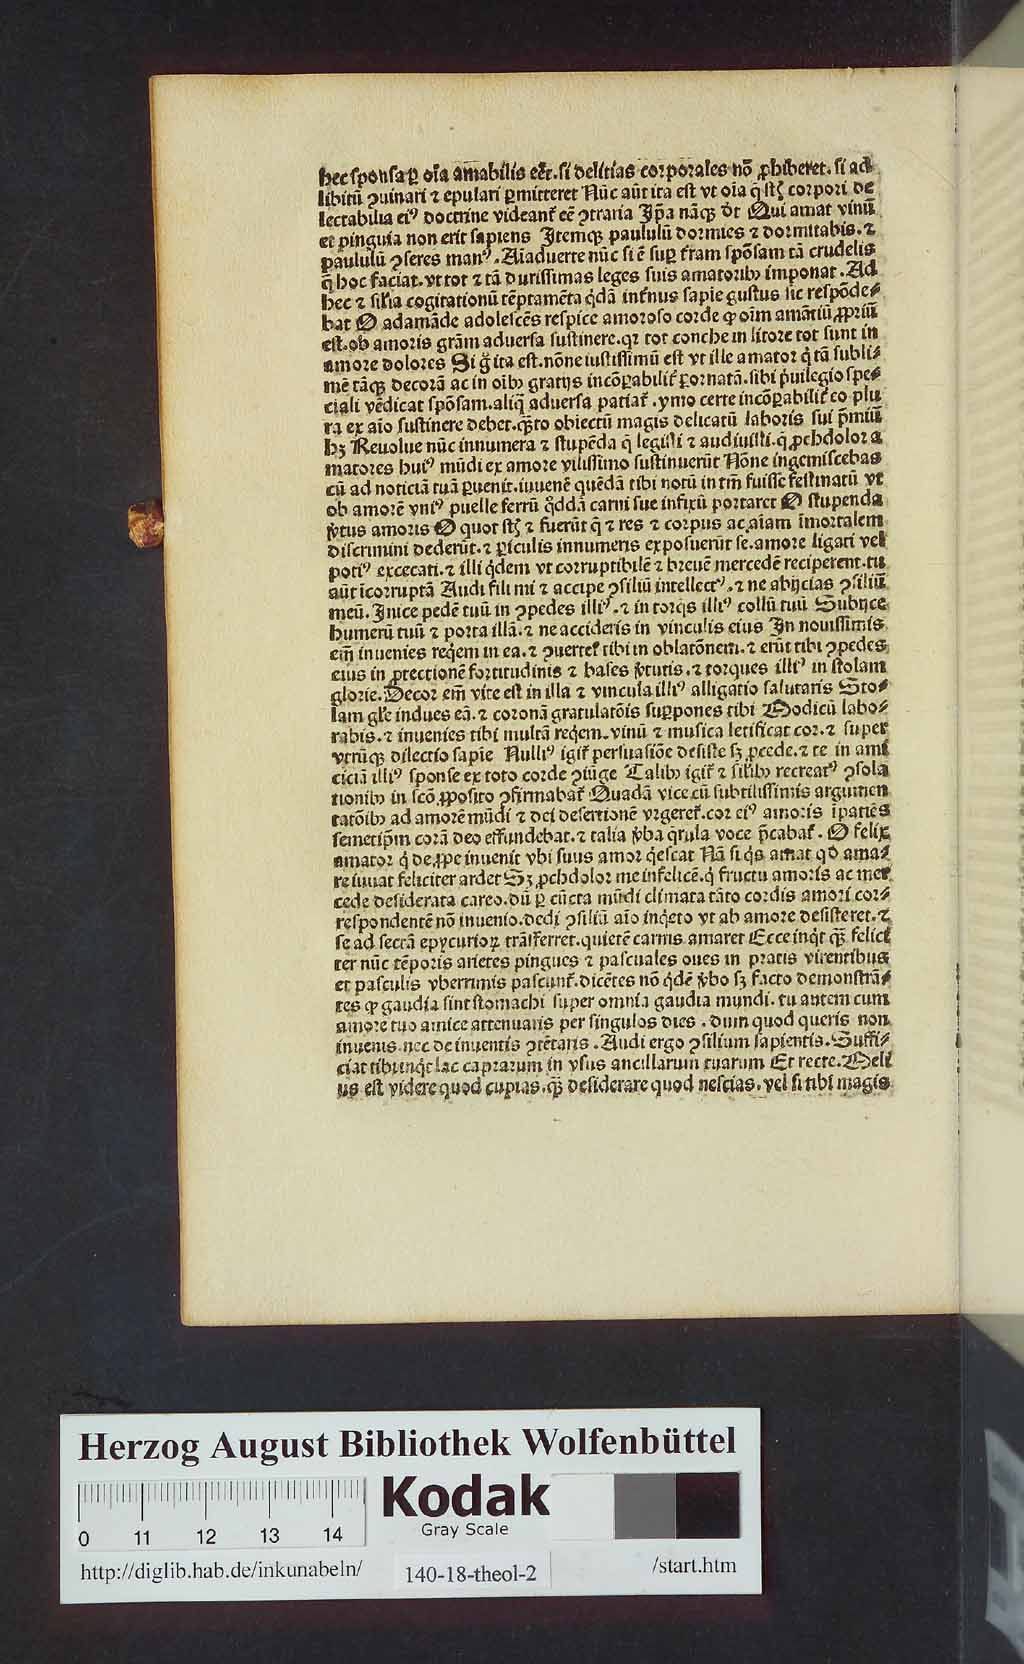 hec sponsa ꝑ oīa amabilis eēt. si delitias corporales nō ꝓhiberet. si ad
libitū ꝯuinari ⁊ epulari ꝑmitteret Nūc aūt ita est vt oīa q̄ sūt corpori de
lectabilia eiꝰ doctrine videant᷑ eē ꝯtraria Ip̄a nāqꝫ dr̄t Qui amat vinū
et pinguia non erit sapiens Itemqꝫ paululū dormies ⁊ dormitabis. ⁊
paululū ꝯseres manꝰ. Aīaduerte nūc si ē suꝑ tr̄am spōsam tā crudelis
q̄ hoc faciat. vt tot ⁊ tā durissimas leges suis amatoribꝫ imponat. Ad
hec ⁊ sil̄ia cogitationū tēptamēta q̇dā int̄nus sapie gustus sic respōde⸗
bat O adamāde adolescēs respice amoroso corde ꝙ oīm amātiū ꝓpriū
est. ob amoris gr̄am aduersa sustinere. qꝛ tot conche in litore tot sunt in
amore dolores Si g̊ ita est. nōne iustissimū est vt ille amator q̇ tā subli⸗
mē tāqꝫ decorā ac in oībꝫ gratijs incōꝑabilit᷑ ꝑornatā. sibi ṗuilegio spe⸗
ciali vēdicat spōsam. aliq̄ aduersa patiat᷑. ymo certe incōꝑabilit᷑ eo plu
ra ex aīo sustinere debet. q̄ꝫto obiectū magis delicatū laboris sui p̄miū
hꝫ Reuolue nūc innumera ⁊ stupēda q̄ legisti ⁊ audiuisti. q̄ ꝓchdolor a
matores huiꝰ mūdi ex amore vilissimo sustinuerūt Nōne ingemiscebas
cū ad noticiā tuā ꝑuenit. iuuenē quēdā tibi notū in tm̄ fuisse festinatū vt
ob amorē vniꝰ puelle ferrū q̊ddā carni sue infixū portaret O stupenda
v̇tus amoris O quot sūt ⁊ fuerūt q̇ ⁊ res ⁊ corpus ac aīam īmortalem
discrimini dederūt. ⁊ ꝑiculis innumeris exposuerūt se. amore ligati vel
potiꝰ excecati. ⁊ illi q̇dem vt corruptibilē ⁊ breuē mercedē reciperent. tu
aūt īcorruptā Audi fili mi ⁊ accipe ꝯsiliū intellectꝰ. ⁊ ne abijcias ꝯsiliū
meū. Inice pedē tuū in ꝯpedes illiꝰ. ⁊ in torq̄s illiꝰ collū tuū Subijce
humerū tuū ⁊ porta illā. ⁊ ne accideris in vinculis eius In nouissimis
em̄ inuenies req̇em in ea. ⁊ ꝯuertet᷑ tibi in oblatōnem. ⁊ erūt tibi ꝯpedes
eius in ꝓtectionē fortitudinis ⁊ bases v̇tutis. ⁊ torques illiꝰ in stolam
glorie. Decor em̄ vite est in illa ⁊ vincula illiꝰ alligatio salutaris Sto⸗
lam gl̄e indues eā. ⁊ coronā gratulatōis suꝑpones tibi Modicū labo⸗
rabis. ⁊ inuenies tibi multā req̇em. vinū ⁊ musica letificat cor. ⁊ super
vtrūqꝫ dilectio sapīe Nulliꝰ igit᷑ persuasiōe desiste sꝫ ꝓcede. ⁊ te in ami
ciciā illiꝰ sponse ex toto corde ꝯiūge Talibꝫ igit᷑ ⁊ sil̄ibꝫ recreatꝰ ꝯsola
tionibꝫ in scō ꝓposito ꝯfirmabat᷑ Quadā vice cū subtilissimis argumen
tatōibꝫ ad amorē mūdi ⁊ dei desertionē vrgeret᷑. cor eiꝰ amoris īpatiēs
semetip̄m corā deo effundebat. ⁊ talia v̇ba q̄rula voce p̄cabat᷑. O felix
amator q̇ de ꝓpe inuenit vbi suus amor q̇escat Nā si q̇s amat qd̄ ama⸗
re iuuat feliciter ardet Sꝫ ꝓchdolor me infelicē. q̇ fructu amoris ac mer
cede desiderata careo. dū ꝑ cūcta mūdi climata tāto cordis amori cor⸗
respondentē nō inuenio. dedi ꝯsiliū aīo inq̇eto vt ab amore desisteret. ⁊
se ad sectā epycurioꝝ trāsferret. quietē carnis amaret Ecce inq̇t q̄ꝫ felici
ter nūc tēporis arietes pingues ⁊ pascuales oues in pratis virentibus
et pasculis vberrimis pascunt᷑. dicētes nō q̇dē v̇bo sꝫ facto demonstrā⸗
tes ꝙ gaudia sint stomachi super omnia gaudia mundi. tu autem cum
amore tuo amice attenuaris per singulos dies. dum quod queris non
inuenis. nec de inuentis ꝯtētaris. Audi ergo ꝯsilium sapientis. Suffi⸗
ciat tibi inq̇t lac caprarum in vsus ancillarum tuarum Et recte. Meli
us est videre quod cupias. q̄ꝫ desiderare quod nescias. vel si tibi magis
Herzog August Bibliothek Wolfenbüttel
Kodak
Gray Scale
0 11 12 13 14
http://diglib.hab.de/inkunabeln/ 140-18-theol-2 /start.htm